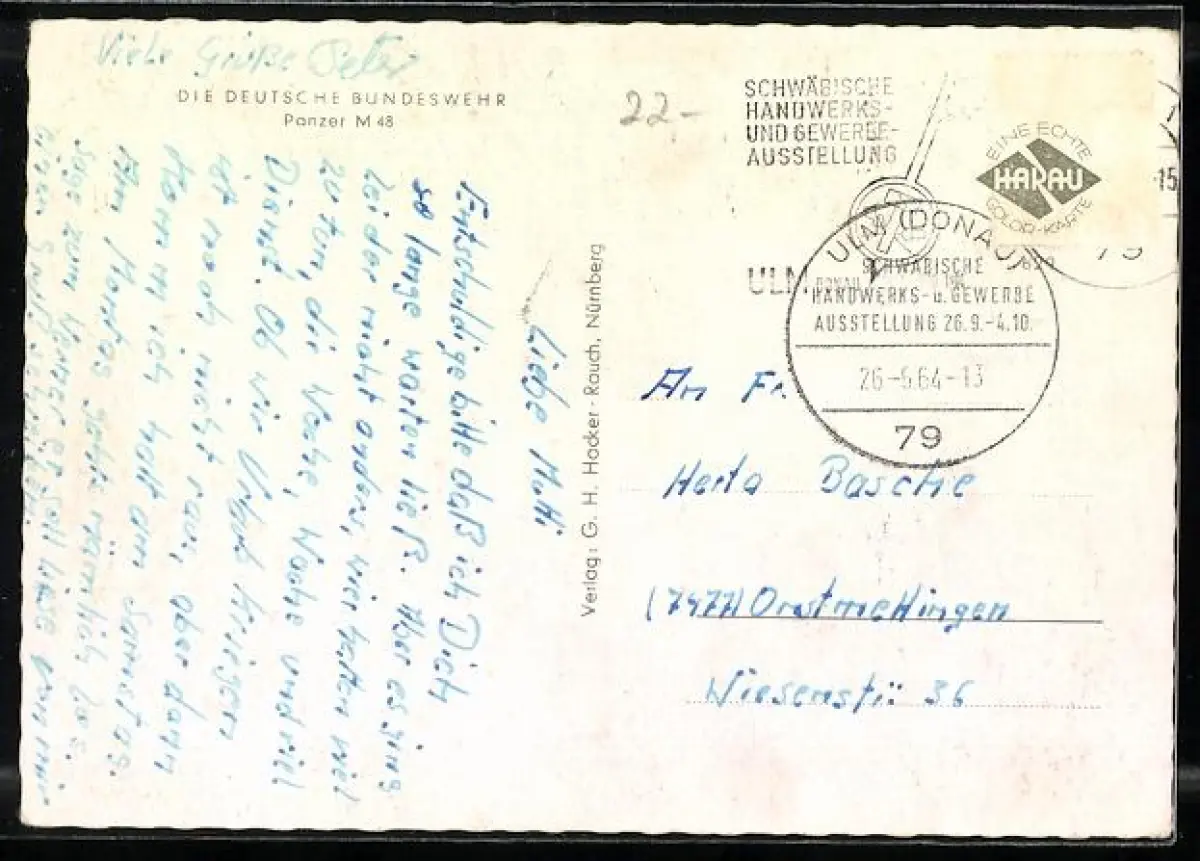 Viele Grüße Peter
DIE DEUTSCHE BUNDESWEHR
Panzer M 48
22.-
SCHWÄBISCHE
HANDWERKS-
UND GEWERBE-
AUSSTELLUNG
ULM
EINE ECHTE
HARAU
COLOR-KARTE
15
79
ULM (DONAU)
SCHWÄBISCHE
HANDWERKS- u. GEWERBE
AUSSTELLUNG 26.9.-4.10.
64-13
79
Verlag: G. H. Hocker-Rauch, Nürnberg
Liebe Mutti
Entschuldige bitte daß ich Dich
so lange warten ließ. Aber es ging
leider nicht anders, wir hatten viel
zu tun, die Woche, Wache und viel
Dienst. Ob wir Urlaub kriegen
ist noch nicht raus, aber dann
komm ich halt am Samstag.
Am Montag gehts nämlich los.
Sage zum
einen schreiben.
An Fr.
Herta Basche
(7477) Onstmettingen
Wiesenstr 36